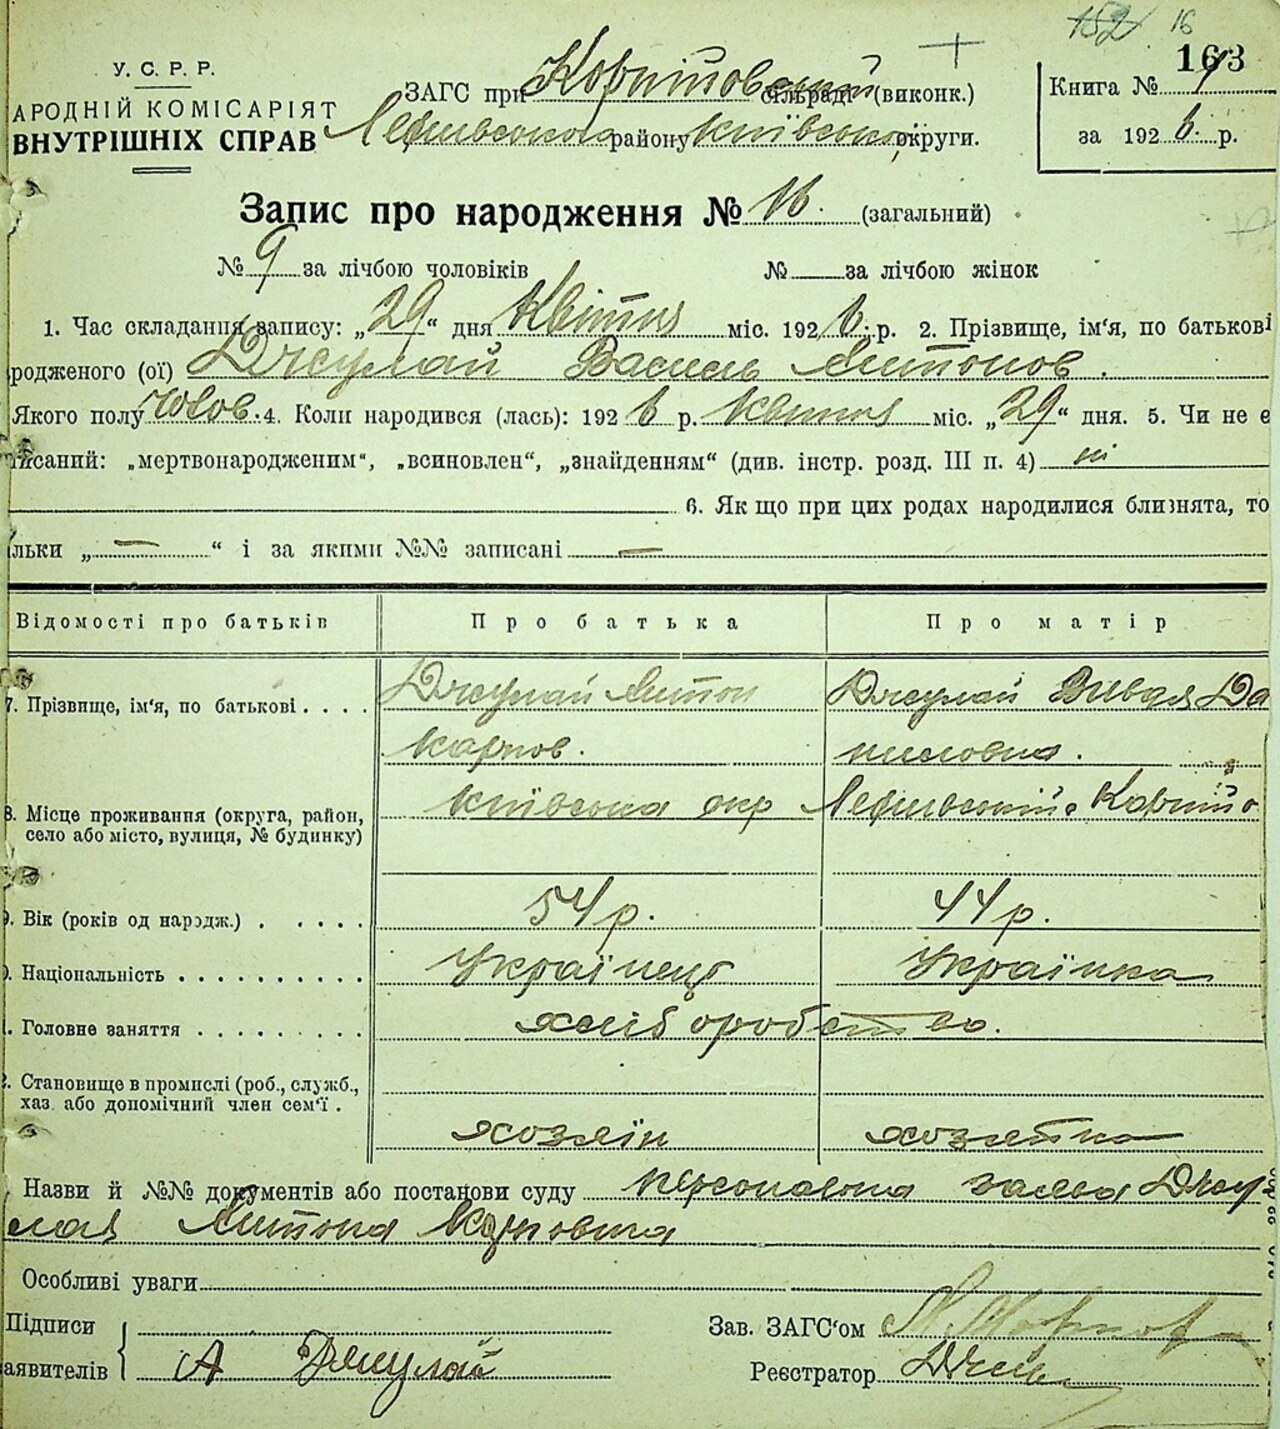 152 16
163
У. С. Р. Р.
АРОДНІЙ КОМІСАРІЯТ
ВНУТРІШНІХ СПРАВ
ЗАГС при сільраді (виконк.)
району Київської округи.
Книга № 1
за 1926 р.
Запис про народження № 16. (загальний)
№ 9 за лічбою чоловіків № за лічбою жінок
1. Час складання запису: „29“ дня Квітня міс. 1926 р. 2. Прізвище, ім'я, по батькові
родженого (ої) Джулай Василь Антонов.
Якого полу Чолов. 4. Коли народився (лась): 1926 р. квітня міс. „29“ дня. 5. Чи не є
писаний: „мертвонародженим“, „всиновлен“, „знайденням“ (див. інстр. розд. III п. 4) ні
6. Як що при цих родах народилися близнята, то
льки „—“ і за якими №№ записані —
Відомості про батьків Про батька Про матір
7. Прізвище, ім'я, по батькові . . . . Джулай Антон Джулай Да
Карпов. ниловна.
8. Місце проживання (округа, район, Київська окр
село або місто, вулиця, № будинку)
9. Вік (років од народж.) . . . . . 54 р. 44 р.
0. Національність . . . . . . . . . . Українець Українка
1. Головне заняття . . . . . . . . . хліборобство.
2. Становище в промислі (роб., служб.,
хаз. або допомічний член сем'ї .
хозяїн хозяйка
Назви й №№ документів або постанови суду персональна заява Джу
лая Антона Карповича
Особливі уваги
Підписи Зав. ЗАГС'ом
аявителів А Джулай Реєстратор